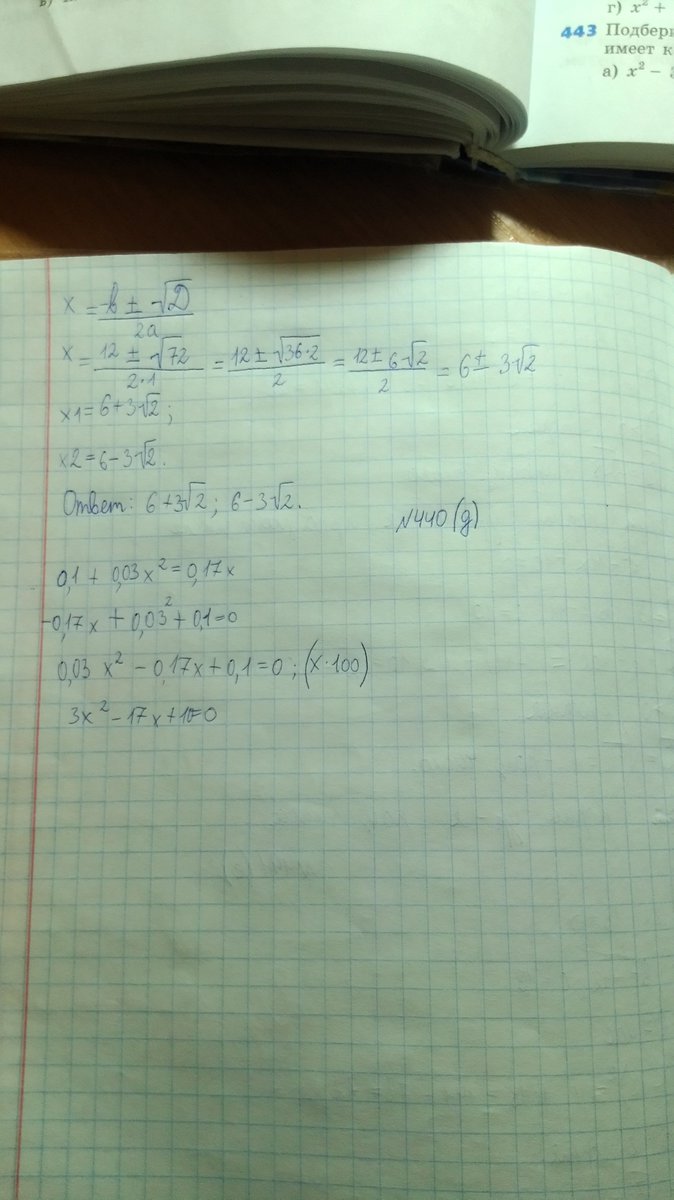 г) x² +
443 Подбери
имеет к
а) x² –
x = -b ± √D / 2a
x = 12 ± √72 / 2·1 = 12 ± √36·2 / 2 = 12 ± 6√2 / 2 = 6 ± 3√2
x1 = 6+3√2;
x2 = 6-3√2.
Ответ: 6+3√2; 6-3√2.
№440(д)
0,1 + 0,03x² = 0,17x
-0,17x + 0,03² + 0,1=0
0,03 x² - 0,17x + 0,1 = 0; (x·100)
3x² - 17x + 10=0